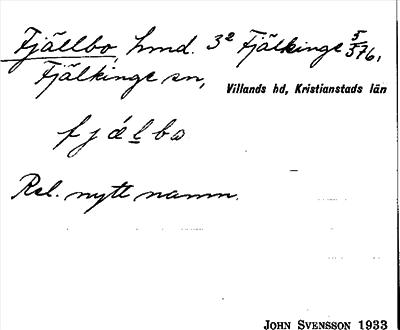 Fjällbo, hmd. 3² Fjälkinge 5/376,
Fjälkinge sn,
Villands hd, Kristianstads län
fjálbo
Rel. nytt namn.
JOHN SVENSSON 1933